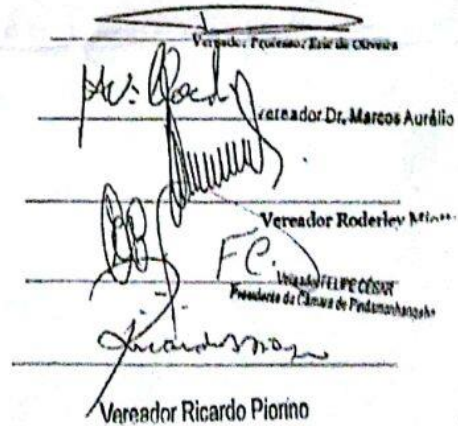 Vereador Professor Eric de Oliveira
Vereador Dr. Marcos Aurélio
Vereador Roderley
F.C.
Vereador FELIPE CÉSAR
Presidente da Câmara de Pindamonhangaba
Vereador Ricardo Piorino